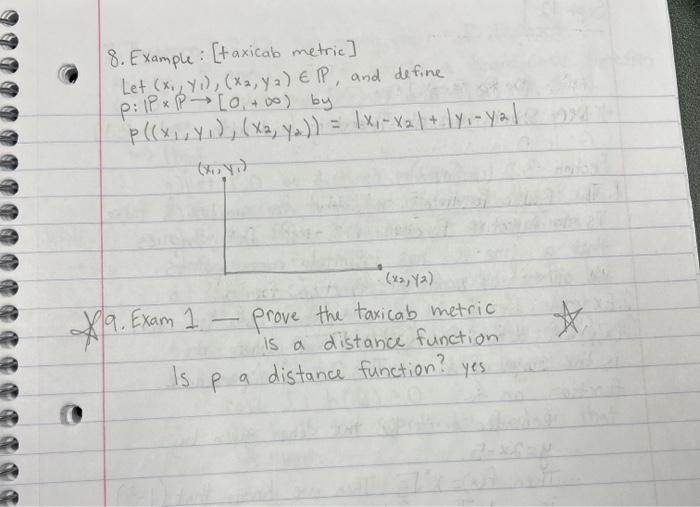 8. Example: [taxicab metric]
Let (x₁, y₁), (x₂, y₂) ∈ ℙ, and define
p: ℙ × ℙ → [0, +∞) by
p((x₁, y₁), (x₂, y₂)) = |x₁-x₂| + |y₁-y₂|
(x₁, y₁)
(x₂, y₂)
☆ 9. Exam 1 — prove the taxicab metric ☆
is a distance function
Is p a distance function? yes